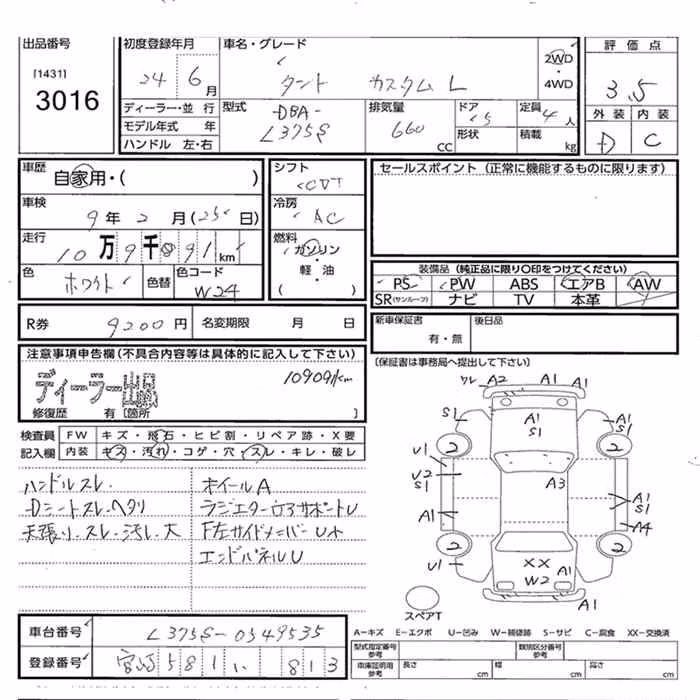 出品番号
[1431]
3016
初度登録年月
24 6月
車名・グレード
タント カスタム L
2WD
・
4WD
評価点
3.5
外装 内装
D C
ディーラー・並行
モデル年式 年
ハンドル 左・右
型式
DBA-
L375S
排気量
660
CC
ドア
5
形状
定員
4人
積載
kg
車歴
自家用・( )
車検
9年2月(25日)
走行
10万9千 91km
色
ホワイト
色替
色コード
W24
シフト
CVT
冷房
AC
燃料
ガソリン
・
軽・油
( )
セールスポイント(正常に機能するものに限ります)
装備品(純正品に限り〇印をつけてください)
PS PW ABS エアB AW
SR(サンルーフ) ナビ TV 本革
R券 9200円 名変期限 月 日
新車保証書
有・無
後日品
[保証書は事務局へ提出して下さい]
注意事項申告欄(不具合内容等は具体的に記入して下さい)
ディーラー出品
10909/km
修復歴 有[箇所 ]
検査員 FW キズ・飛石・ヒビ割・リペア跡・X要
記入欄 内装 キズ・汚れ・コゲ・穴・スレ・キレ・破レ
ハンドルスレ
Dシートスレ・ヘタリ
天張り・スレ・汚レ・大
ホイールA
ラジエターコアサポートU
F左サイドメンバーU小
エンドパネルU
ワレ A2 A1 A1
S1 A1
S1 A1
S1
2 2
U1
U2
S1
A3
A1
A1
S1
A4
2 2
U1
XX
W2
A1
A1
スペアT
A-キズ E-エクボ U-凹み W-補修跡 S-サビ C-腐食 XX-交換済
車台番号 L375S-0549535
登録番号 宮崎581い 813
型式指定番号
参考
類別区分番号
参考
車庫証明用
参考
長さ cm
幅 cm
高さ cm